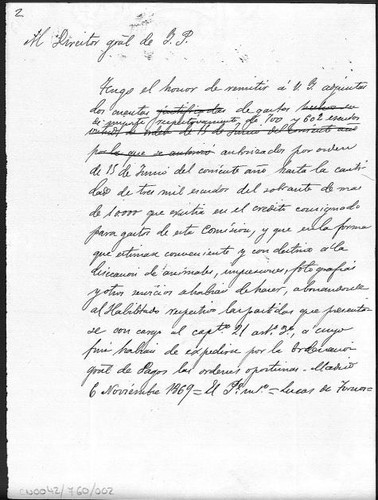 2
Al Director gral de I. P.
Tengo el honor de remitir á V. I. adjuntas
dos cuentas justificadas de gastos
importante respectivamente de 700 y 602 escudos
orden de 15 de Junio del corriente año
por la que se autorizó autorizados por orden
de 15 de Junio del corriente año hasta la canti-
dad de tres mil escudos del sobrante de mas
de 10000 que existia en el credito consignado
para gastos de esta Comision, y que en la forma
que estimara conveniente y con destino á la
disecacion de animales, impresiones, fotografias
y otros servicios acababa de hacer, abonandosele
al Habilitado respectivo las partidas que presenta-
se con cargo al capº 21 artº 3º, a cuyo
fin habian de expedirse por la Ordenacion
gral de Pagos las ordenes oportunas. Madrid
6 Noviembre 1869 = El Pº = Lucas de Tornos =
CN0042/760/002